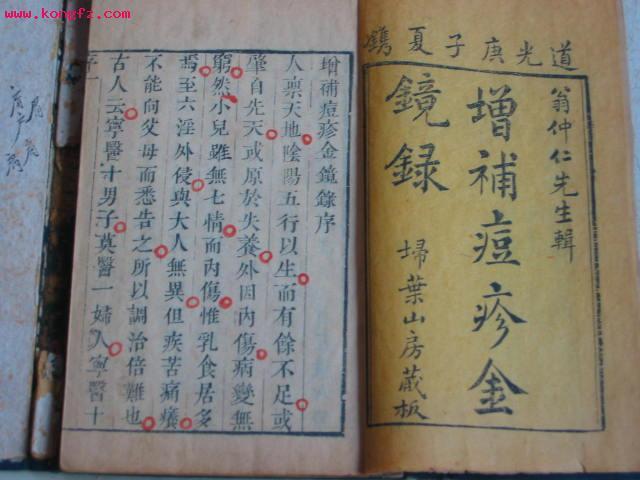 www.kongfz.com
道光庚子夏鐫
翁仲仁先生輯
增補痘疹金
鏡錄
埽葉山房藏板
增補痘疹金鏡錄序
人禀天地陰陽五行以生而有餘不足或
肇自先天或原於失養外因內傷病變無
窮然小兒雖無七情而內傷惟乳食居多
焉至六淫外侵與大人無異但疾苦痛癢
不能向父母而悉告之所以調治倍難也
古人云寧醫十男子莫醫一婦人寧醫十
序 一